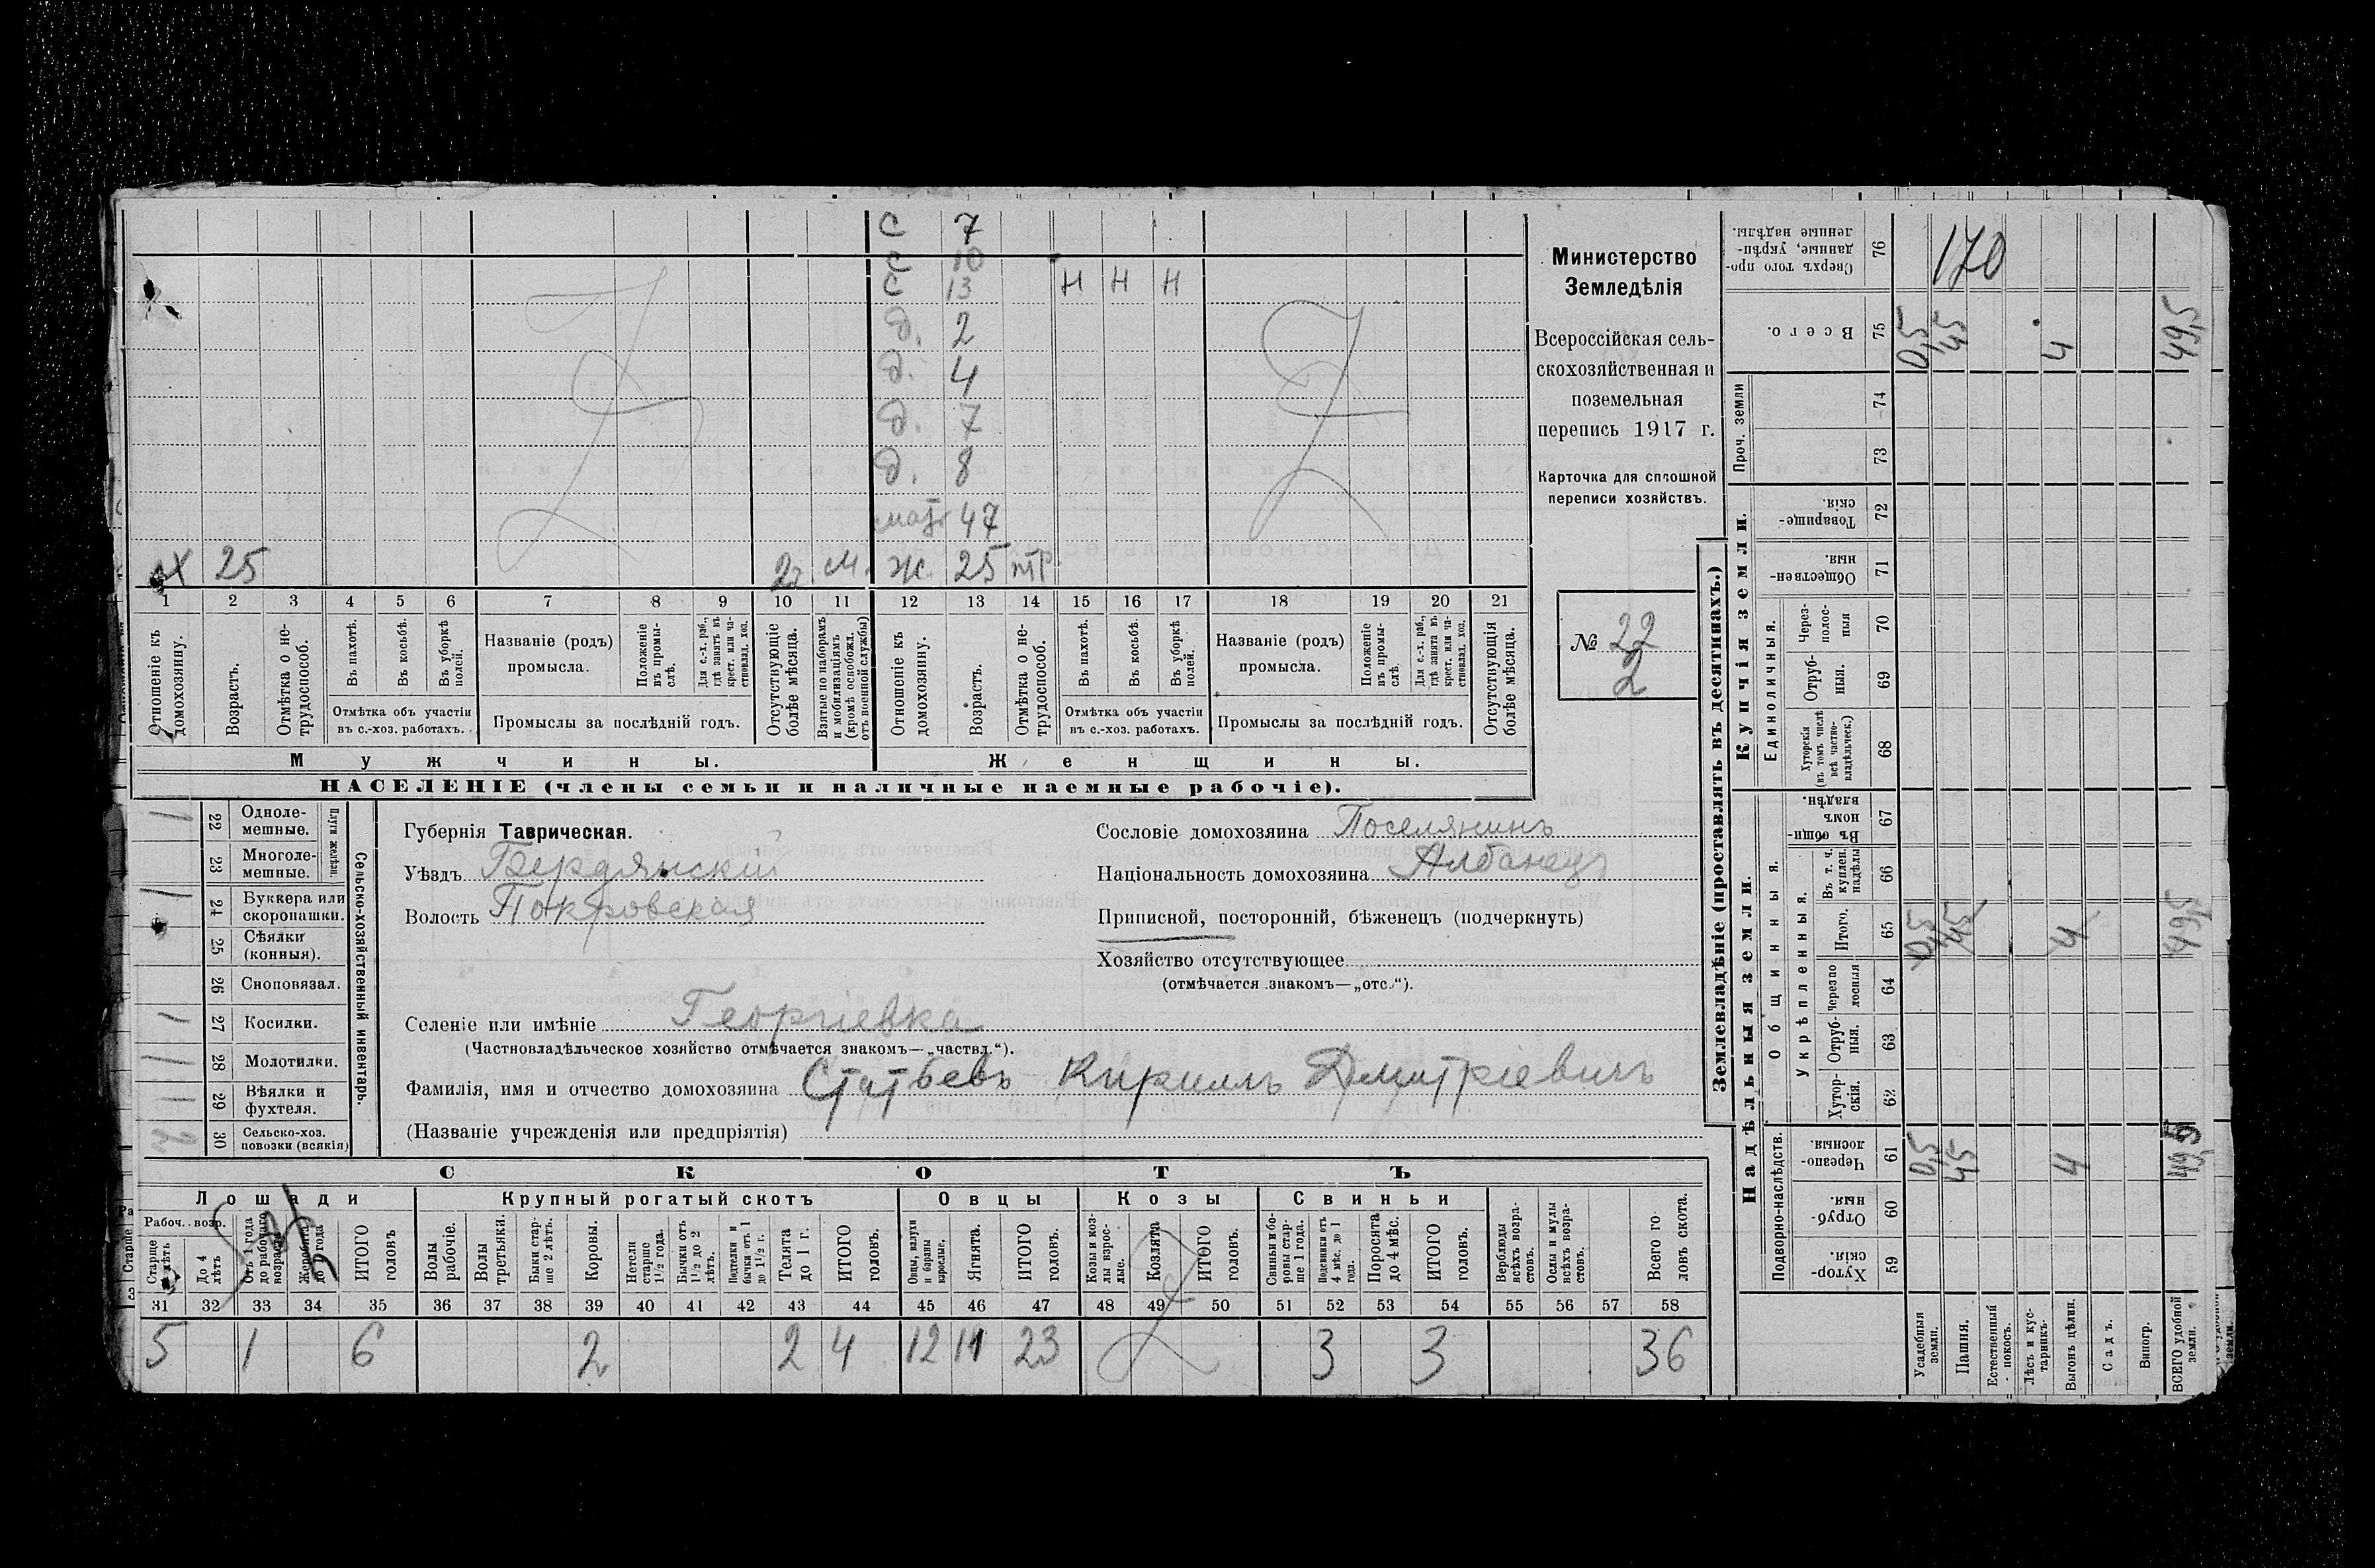 С 7
С 10
С 13 Н Н Н
д. 2
д. 4
д. 7
д. 8
мать 47
х 25 2 м. ж. 25 тр.
1 2 3 4 5 6 7 8 9 10 11 12 13 14 15 16 17 18 19 20 21
Отношеніе къ домохозяину.
Возрастъ.
Отмѣтка о не-трудоспособ.
Въ пахотѣ.
Въ косьбѣ.
Въ уборкѣ полей.
Отмѣтка объ участіи
въ с.-хоз. работахъ.
Названіе (родъ)
промысла.
Положеніе въ промы-слѣ.
Для с.-х. раб., гдѣ занятъ въ крест. или ча-стновлад. хоз.
Промыслы за послѣдній годъ.
Отсутствующіе болѣе мѣсяца.
Взятые по наборамъ и мобилизаціямъ (кромѣ освобожд. отъ военной службы)
Отношеніе къ домохозяину.
Возрастъ.
Отмѣтка о не-трудоспособ.
Въ пахотѣ.
Въ косьбѣ.
Въ уборкѣ полей.
Отмѣтка объ участіи
въ с.-хоз. работахъ.
Названіе (родъ)
промысла.
Положеніе въ промы-слѣ.
Для с.-х. раб., гдѣ занята въ крест. или ча-стновлад. хоз.
Промыслы за послѣдній годъ.
Отсутствующія болѣе мѣсяца.
Мужчины. Женщины.
НАСЕЛЕНІЕ (члены семьи и наличные наемные рабочіе).
Министерство
Земледѣлія
Всероссійская сель-
скохозяйственная и
поземельная
перепись 1917 г.
Карточка для сплошной
переписи хозяйствъ.
№ 22
2
Сельско-хозяйственный инвентарь.
Плуги желѣзн.
1 22 Одноле-мешные.
23 Многоле-мешные.
1 24 Буккера или скоропашки.
25 Сѣялки (конныя).
26 Сноповязал.
1 27 Косилки.
1 28 Молотилки.
1 29 Вѣялки и фухтеля.
2 30 Сельско-хоз. повозки (всякія)
Губернія Таврическая.
Уѣздъ Бердянскій
Волость Покровская
Сословіе домохозяина Поселянинъ
Національность домохозяина Албанецъ
Приписной, посторонній, бѣженецъ (подчеркнуть)
Хозяйство отсутствующее
(отмѣчается знакомъ—„отс.“).
Селеніе или имѣніе Георгіевка
(Частновладѣльческое хозяйство отмѣчается знакомъ—„частвл.“).
Фамилія, имя и отчество домохозяина Статьевъ Кириллъ Дмитріевичъ
(Названіе учрежденія или предпріятія)
СКОТЪ
Лошади Крупный рогатый скотъ Овцы Козы Свиньи
Рабоч. возр.
Старше лѣтъ
До 4 лѣтъ
Отъ 1 года до рабочаго возраста
Жеребята до 1 года
ИТОГО головъ
Волы рабочіе.
Волы третьяки.
Быки стар-ше 2 лѣтъ.
Коровы.
Нетели старше 1½ года.
Бычки отъ 1½ до 2 лѣтъ.
Подтелки и бычки отъ 1 до 1½ г.
Телята до 1 г.
ИТОГО головъ.
Овцы, валухи и бараны взрослые.
Ягнята.
ИТОГО головъ.
Козы и коз-лы взрос-лые.
Козлята
ИТОГО головъ.
Свиньи и бо-ровы стар-ше 1 года.
Подсвинки отъ 4 мѣс. до 1 года.
Поросята до 4 мѣс.
ИТОГО головъ.
Верблюды всѣхъ возра-стовъ.
Ослы и мулы всѣхъ возра-стовъ.
Всего го ловъ скота.
31 32 33 34 35 36 37 38 39 40 41 42 43 44 45 46 47 48 49 50 51 52 53 54 55 56 57 58
5 1 6 2 2 4 12 11 23 3 3 36
Землевладѣніе (проставлять въ десятинахъ.)
Купчія земли.
Надѣльныя земли.
Сверхъ того про-данные, укрѣп-ленные надѣлы. 76 170
Всего. 75 0,5 45 4 49,5
Проч. земли
74
73
Товарище-скія 72
Обществен-ныя. 71
Единоличныя.
Через-полос-ныя 70
Отруб-ныя. 69
Хуторскія (въ томъ числѣ всѣ частно-владѣльческ.) 68
Общинныя.
Въ общин-номъ владѣн. 67
Укрѣпленныя.
Въ т. ч. куплен. надѣлы 66
Итого. 65 0,5 45 4 49,5
Черезпо лосныя 64
Отруб-ныя. 63
Хутор-скія. 62
Подворно-наслѣдств.
Черезпо-лосныя 61 0,5 45 4 49,5
Отруб-ныя. 60
Хутор-скія. 59
Усадебныя земли.
Пашня.
Естественный покосъ.
Лѣсъ и кус-тарникъ.
Выгонъ цѣлин.
Садъ.
Виногр.
ВСЕГО удобной земли.